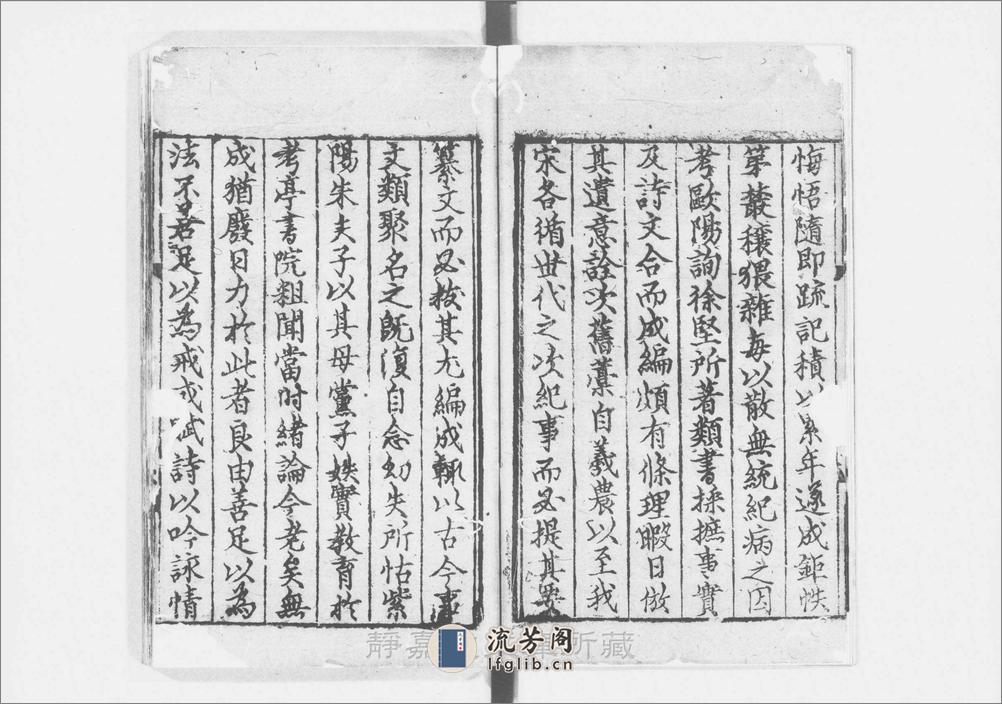 悔悟隨即疏記積以累年遂成鉅帙
第叢穰猥雜每以散無統紀病之因
考歐陽詢徐堅所著類書採摭事實
及詩文合而成編頗有條理暇日倣
其遺意詮次舊藁自羲農以至我
宋各循世代之次紀事而必提其要
纂文而必拔其尤編成輒以古今事
文類聚名之既復自念幼失所怙紫
陽朱夫子以其母黨子姪實教育於
考亭書院粗聞當時緒論今老矣無
成猶廢日力於此者良由善足以為
法不善足以為戒或賦詩以吟詠情
靜嘉 所藏
流芳阁
lfglib.cn